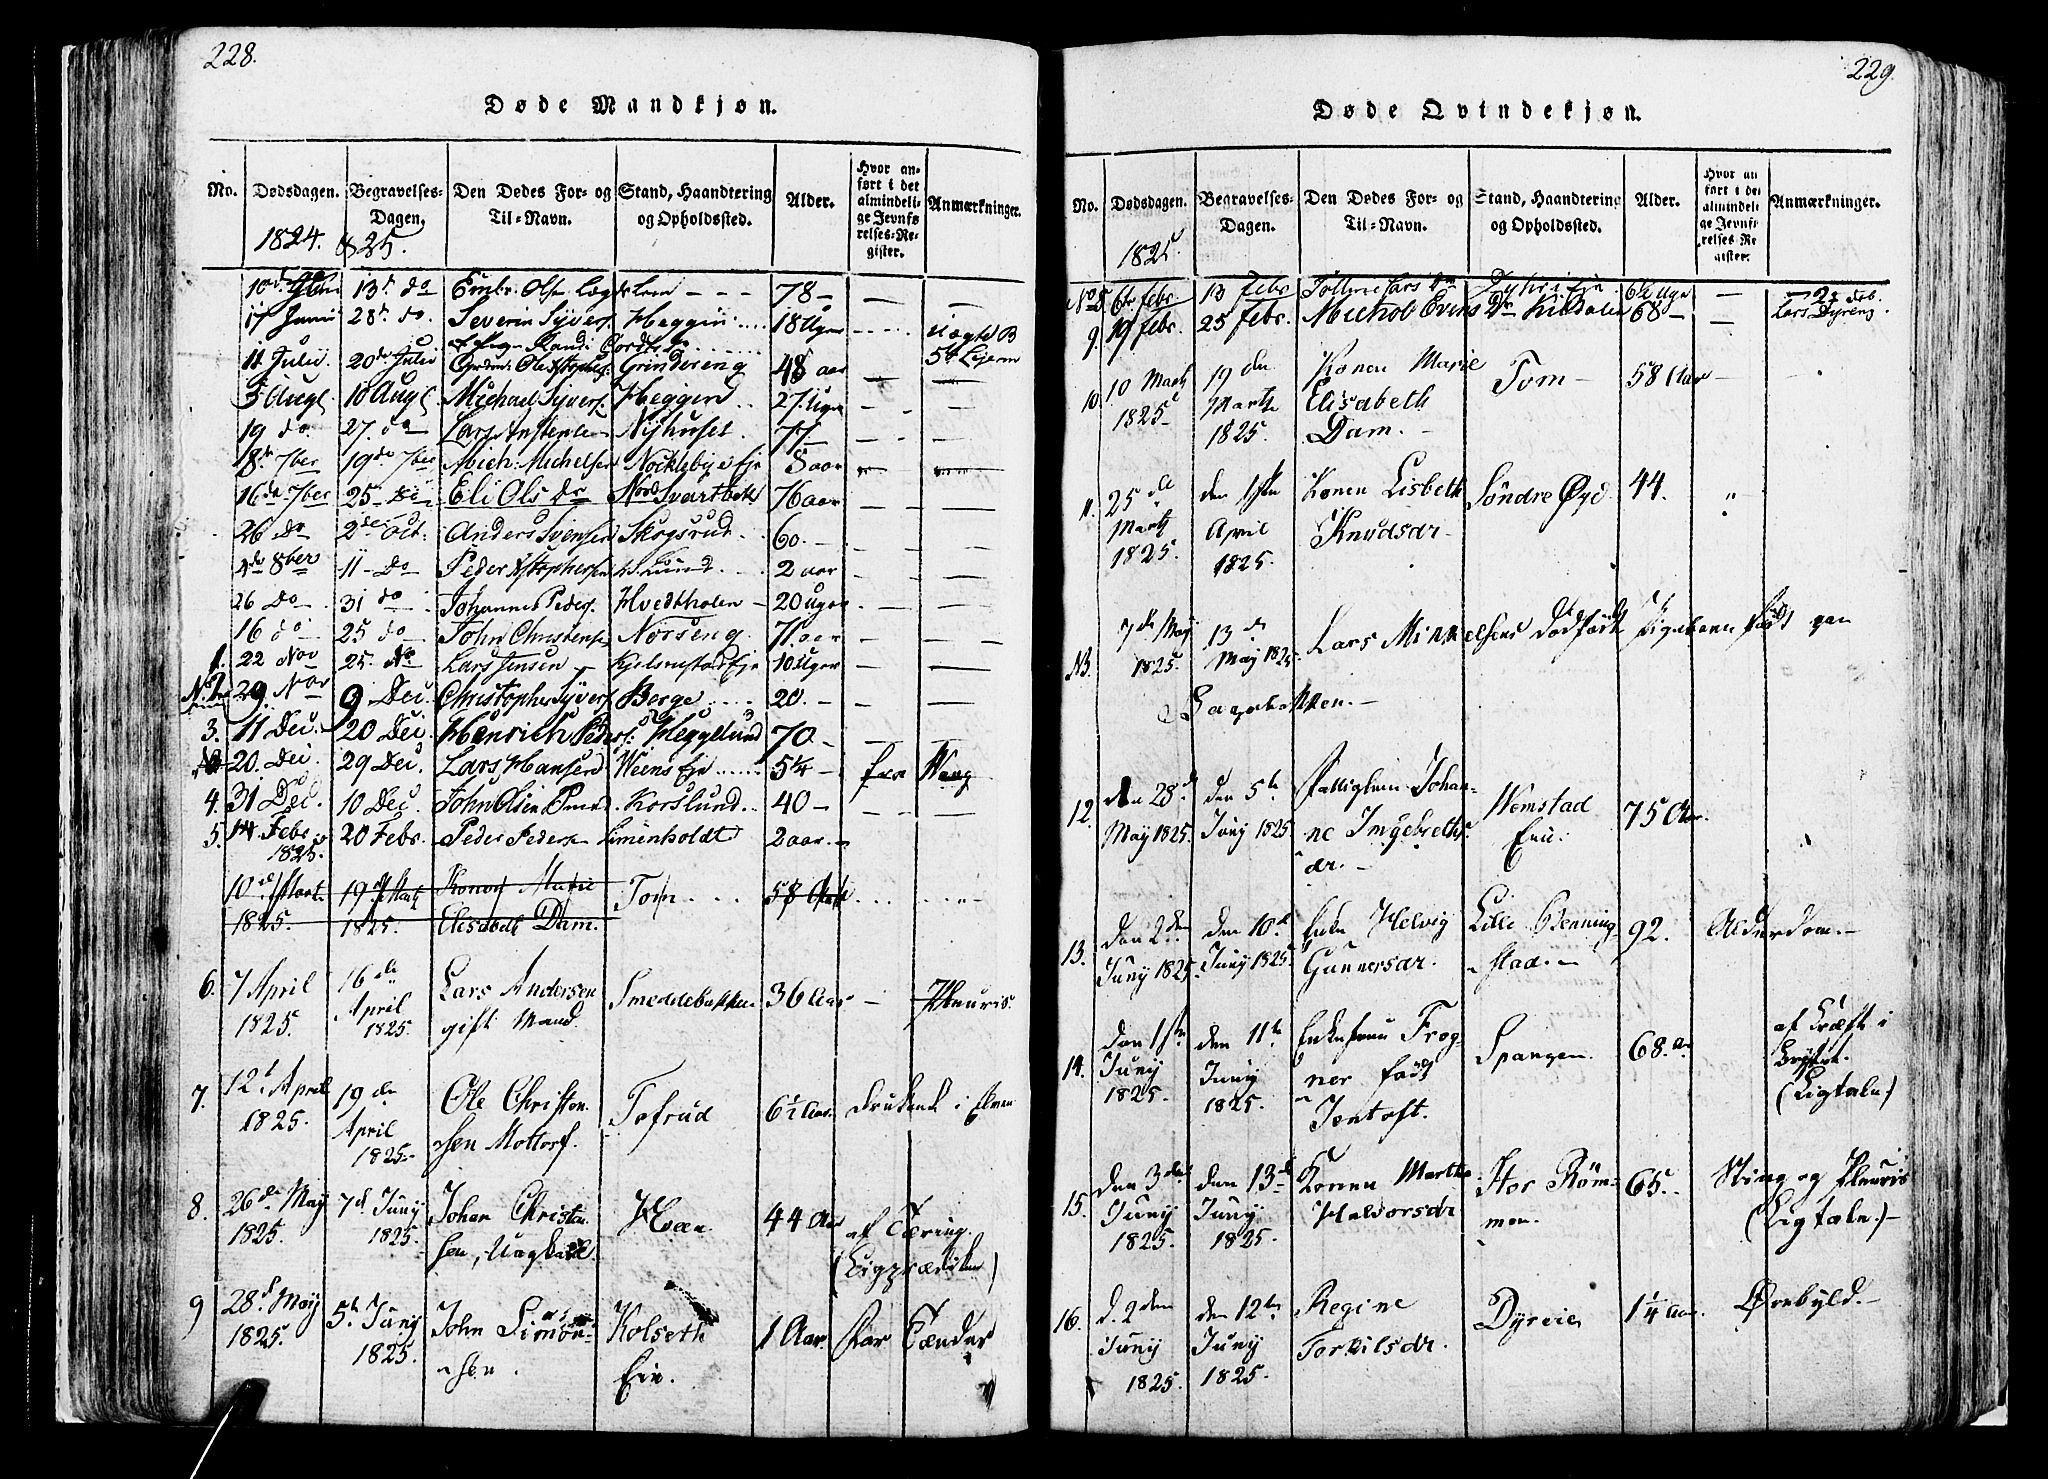 228.
Døde Mandkjøn.
No. Dødsdagen. Begravelses-Dagen, Den Dødes For- og Til-Navn. Stand, Haandtering og Opholdssted. Alder. Hvor anført i det almindelige Jevnførelses-Register. Anmærkninger.
1824. 825.
13t do Embr. Olsen 78 –
17 Junii 28t do. Severin Syvers. Heggin 18 Uger
11 Julii 20de Julii Grindereng 48 aar
5 Augt 10 Augt Michael Syvers. Heggen 27 Uger
19 do 27. do Lars Nyhuset. 77
18de 7ber 19de 7ber Mich: Michelsen Nocklebye Eje 8 aar
16de 7ber 25 Eli Ols dr Nord Svartbek 76 aar
26 do 2den Oct: Anders Svensen Skogsrud 60.
4de 8ber 11 do Peder 2 aar
26 do 31 do Johannes Peders. Hvedtholen 20 Uger
16 do 25 do John Christens. Norseng 71 aar
1. 22 Nov 25. No Lars Jensen Kjelmstad Eje 10 Uger
29. Nov 9 Dec. Christopher Syvers. Berge 20.
3. 11 Dec. 20 Dec. Henrich Peders. Heggelund 70
20. Dec. 29 Dec. Lars Hansen Weens Eje 5 1/4 fra Wang
4. 31 Dec. 10 Dec. John Olsen Korslund 40
5. 14 Febr. 1825. 20 Febr. Peder Peders. Limenholdt 2 aar.
10de Mart. 1825. 19de Martz 1825. Konen Marie Elisabeth Dam. Tom 58 Aar
6. 7 April 1825. 16de April 1825. Lars Andersen gift Mand. Smeddebakken 36 Aar – Pleuris.
7. 12t April 1825. 19den April 1825. Ole Christensen Tofrud 6 1/2 Aar. druknet i Elven
8. 26de May 1825. 7d Juny 1825. Johan Christensen, Ungkarl. 44 Aar af Tæring. (Ligprædiken)
9 28d May 1825. 5t Juny 1825. John Simonsen. Kolseth Eie. 1 Aar. Tænder
229.
Døde Qvindekjøn.
No. Dødsdagen. Begravelses-Dagen. Den Dødes For- og Til-Navn. Stand, Haandtering og Opholdssted. Alder. Hvor anført i det almindelige Jevnførelses Register. Anmærkninger.
1825.
No 8 6te febr. 13 febr 6 1/2 Uge
9. 19 febr. 25 febr. 68 –
10. 10 Martz 1825 19den Martz 1825. Konen Marie Elisabeth Dam. Tom 58 Aar –
11. 25de Martz 1825. den 1ste April 1825. Konen Lisbeth Knudsdr. Søndre 44. "
NB. 7de May 1825. 13de May 1825. Lars Minkelsens dødfødt Pigebarn født paa
Bagebakken.
12. den 28d May 1825. den 5te Juny 1825 Fattiglem Johanne Ingebrethsdr. Wemstad Enn. 75 Aar.
13. den 2den Juny 1825. den 10de Juny 1825. Enke Helvig Gunnersdr. Lille Benningstad. 92. Alderdom.
14. den 1ste Juny 1825. den 11te Juny 1825. Enkefrue Frogner født Jentoft. Spangen. 68. Aar af Kræft i Brystet. (Ligtale)
15. den 3de Juny 1825. den 13de Juny 1825. Konen Marthe Halvorsdr Stor Rømmen. 65. Sting og Pleuris (Ligtale.)
16. d. 2den Juny 1825. den 12te Juny 1825. Regine Torkilsdr. Dyreie 1 1/4 Aar Ørebyld.